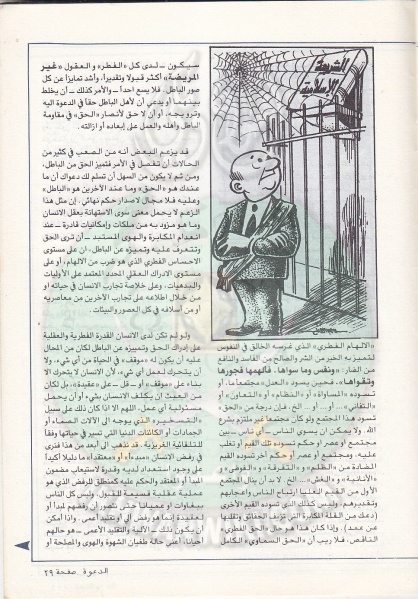 سيكون ـ لدى كل «الفطر» و العقول «غير
المريضة» أكثر قبولا وتقديرا، وأشد تمايزاً عن كل
صور الباطل. فلا يسع احداً ـ والأمر كذلك ـ أن يخلط
بينهما أو يدعي أن لأهل الباطل حقاً في الدعوة اليه
وترويجه، أو أن لا حق لأنصار «الحق» في مقاومة
الباطل وأهله والعمل على إبعاده أو ازالته.
قد يزعم البعض أنه من الصعب في كثير من
الحالات أن تفصل في الأمر فتميز الحق من الباطل،
ومن ثم لا يكون من السهل أن تسلم لك دعواك أن ما
عندك هو «الحق» وما عند الآخرين هو «الباطل»
وعليه فلا مجال لاصدار حكم نهائي. إن مثل هذا
الزعم لا يحمل معنى سوى الاستهانة بعقل الانسان
وما هو مزود به من ملكات وإمكانيات قادرة ـ عند
انعدام المكابرة والهوى المستبد ـ أن ترى الحق
وتتعرف عليه وتميزه عن الباطل، ان على مستوى
الاحساس الفطري الذي هو ضرب من الالهام، أو على
مستوى الادراك العقلي المجرد المعتمد على الأوليات
والبدهيات، وعلى خلاصة تجارب الانسان في حياته أو
من خلال اطلاعه على تجارب الآخرين من معاصريه
أو من أسلافه في كل العصور والبيئات.
ولو لم تكن لدى الانسان القدرة الفطرية والعقلية
على إدراك الحق وتمييزه عن الباطل لكان من المحال
عليه ان يكون له «موقف» في الحياة من أي شيء، ولا
أن يتحرك لعمل أي شيء، لأن الانسان لا يتحرك الا
بناء على «موقف» أو ـ قل ـ على «عقيدة»، بل لكان
من العبث ان يكلف الانسان بشيء أو أن يحمل
مسئولية أي عمل، اللهم الا اذا كان ذلك على سبيل
«التسخير» الذي يوجه الى الآلات الصماء أو
الجمادات أو الكائنات الدنيا التي تسير في حياتها وفقاً
للتلقائية الغريزية. قد نذهب الى أبعد من هذا فنرى
في رفض الانسان «مبدءاً» أو «معتقدا» ما دليلا أكيداً
على وجود استعداد لديه وقدرة لاستيعاب مضمون
المبدأ أو المعتقد والحكم عليه كمنطلق للرفض الذي هو
عملية عقلية قسيمة للقبول. وليس كل الناس
ببغاوات و عميانا حتى نتصور ان رفضهم لمبدأ أو
لعقيدة إنما هو رفض آلي أو تقليد أعمى. واذا أمكن
أن يكون ذلك ـ الآلية والتقليد الأعمى ـ هو حالهم
أحيانا، أعني حالة طغيان الشهوة والهوى والمصلحة أو
الشريعة
الإسلامية
«الالهام الفطري» الذي غرسه الخالق في النفوس
لتمييز به الخير من الشر والصالح من الفاسد والنافع
من الضار: «ونفس وما سواها، فألهمها فجورها
وتقواها» فحين يسود «العدل» مجتمعا ما، أو
تسوده «المساواة» أو «النظام» أو «التعاون» أو
«التفاني» .. أو .. أو .. الخ. فإن درجة من «الحق»
تسود هذا المجتمع ولو كان مجتمعا غير ملتزم بشرع
الله. ولا يمكن ان يسوي الناس ـ أي ناس ـ بين
مجتمع أو عصر او حكم تسوده تلك القيم و تغلب
عليه، ومجتمع أو عصر أو حكم آخر تسوده القيم
المضادة من «الظلم» و «التفرقة» و «الفوضى» و
«الأنانية» و «الغش» ... الخ. لا بد أن ينال المجتمع
الأول من القيم العليا ارتباح الناس واعجابهم
وتقديرهم، وليس كذلك الذي تسوده القيم الأخرى
(دعك من القلة المكابرة التي تزيف الحقائق وتقلبها
عن عمد). وإذا كان هذا هو حال «الحق الفطري»
الناقص، فلا ريب أن «الحق السماوي» الكامل
الدعوة صفحة ٢٩